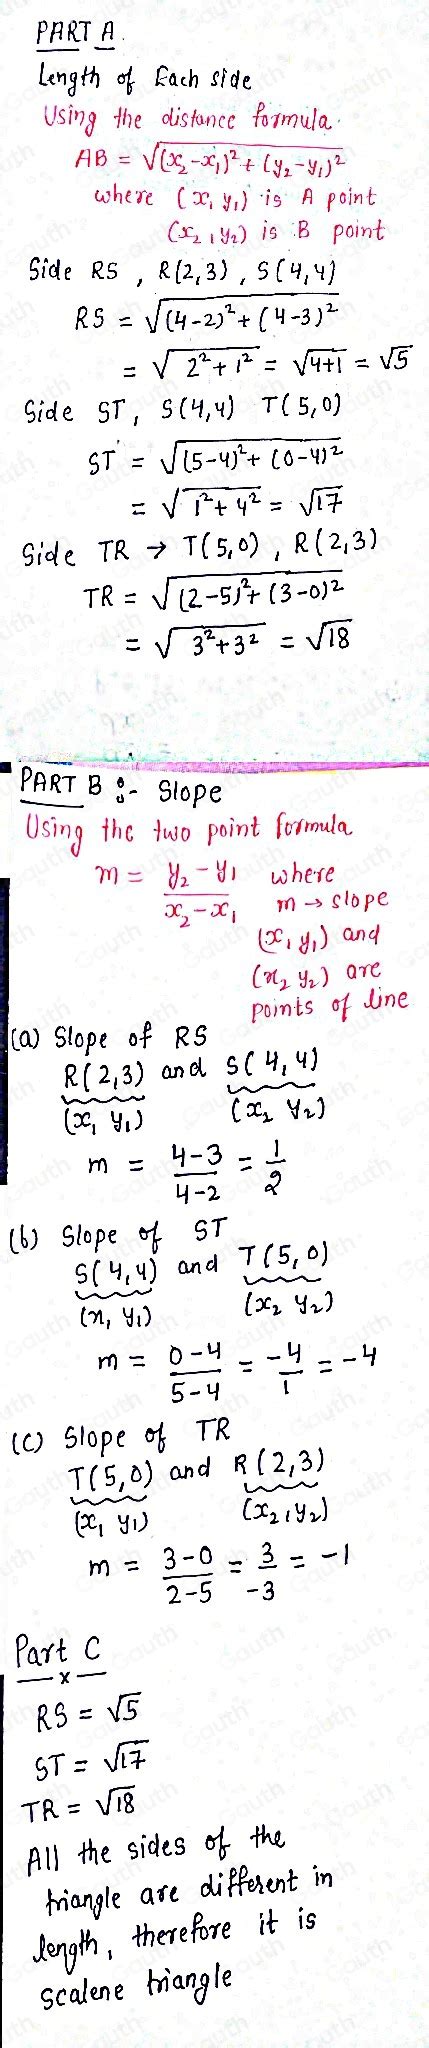 PART A.
Length of Each side
Using the distance formula.
AB = √(x₂-x₁)² + (y₂-y₁)²
where (x₁ y₁) is A point
(x₂, y₂) is B point
Side RS , R(2,3) , S(4,4)
RS = √(4-2)² + (4-3)²
= √2²+1² = √4+1 = √5
Side ST, S(4,4) T(5,0)
ST = √(5-4)² + (0-4)²
= √1²+4² = √17
Side TR → T(5,0) , R(2,3)
TR = √(2-5)² + (3-0)²
= √3²+3² = √18
PART B :- Slope
Using the two point formula
m = y₂-y₁ / x₂-x₁ where
m → slope
(x₁ y₁) and
(x₂ y₂) are
points of line
(a) Slope of RS
R(2,3) and S(4,4)
(x₁ y₁) (x₂ y₂)
m = 4-3 / 4-2 = 1/2
(b) Slope of ST
S(4,4) and T(5,0)
(x₁ y₁) (x₂ y₂)
m = 0-4 / 5-4 = -4/1 = -4
(c) Slope of TR
T(5,0) and R(2,3)
(x₁ y₁) (x₂, y₂)
m = 3-0 / 2-5 = 3/-3 = -1
Part C
x
RS = √5
ST = √17
TR = √18
All the sides of the
triangle are different in
length, therefore it is
scalene triangle